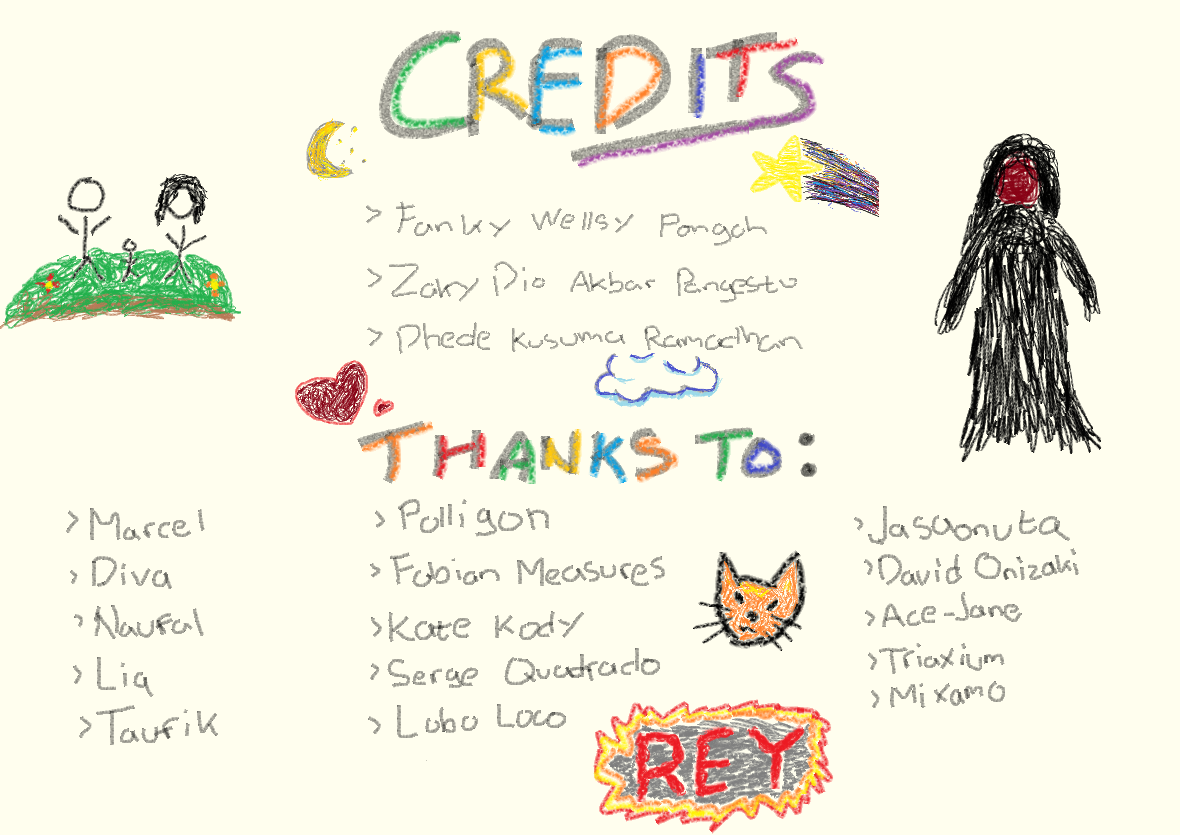 CREDITS
> Fanky Wellsy Pongoh
> Zaky Dio Akbar Pangestu
> Dhede Kusuma Ramadhan
THANKS TO:
> Marcel
> Diva
> Naufal
> Lia
> Taufik
> Polligon
> Fabian Measures
> Kate Kody
> Serge Quadrado
> Lobo Loco
> Jasuonuta
> David Onizaki
> Ace-Jane
> Triaxium
> Mixamo
REY